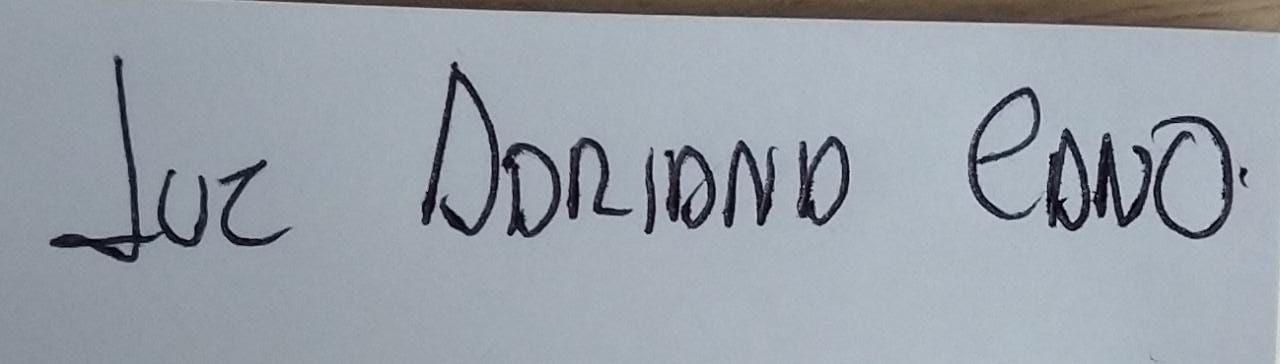 Luz ADRIANA CANO.